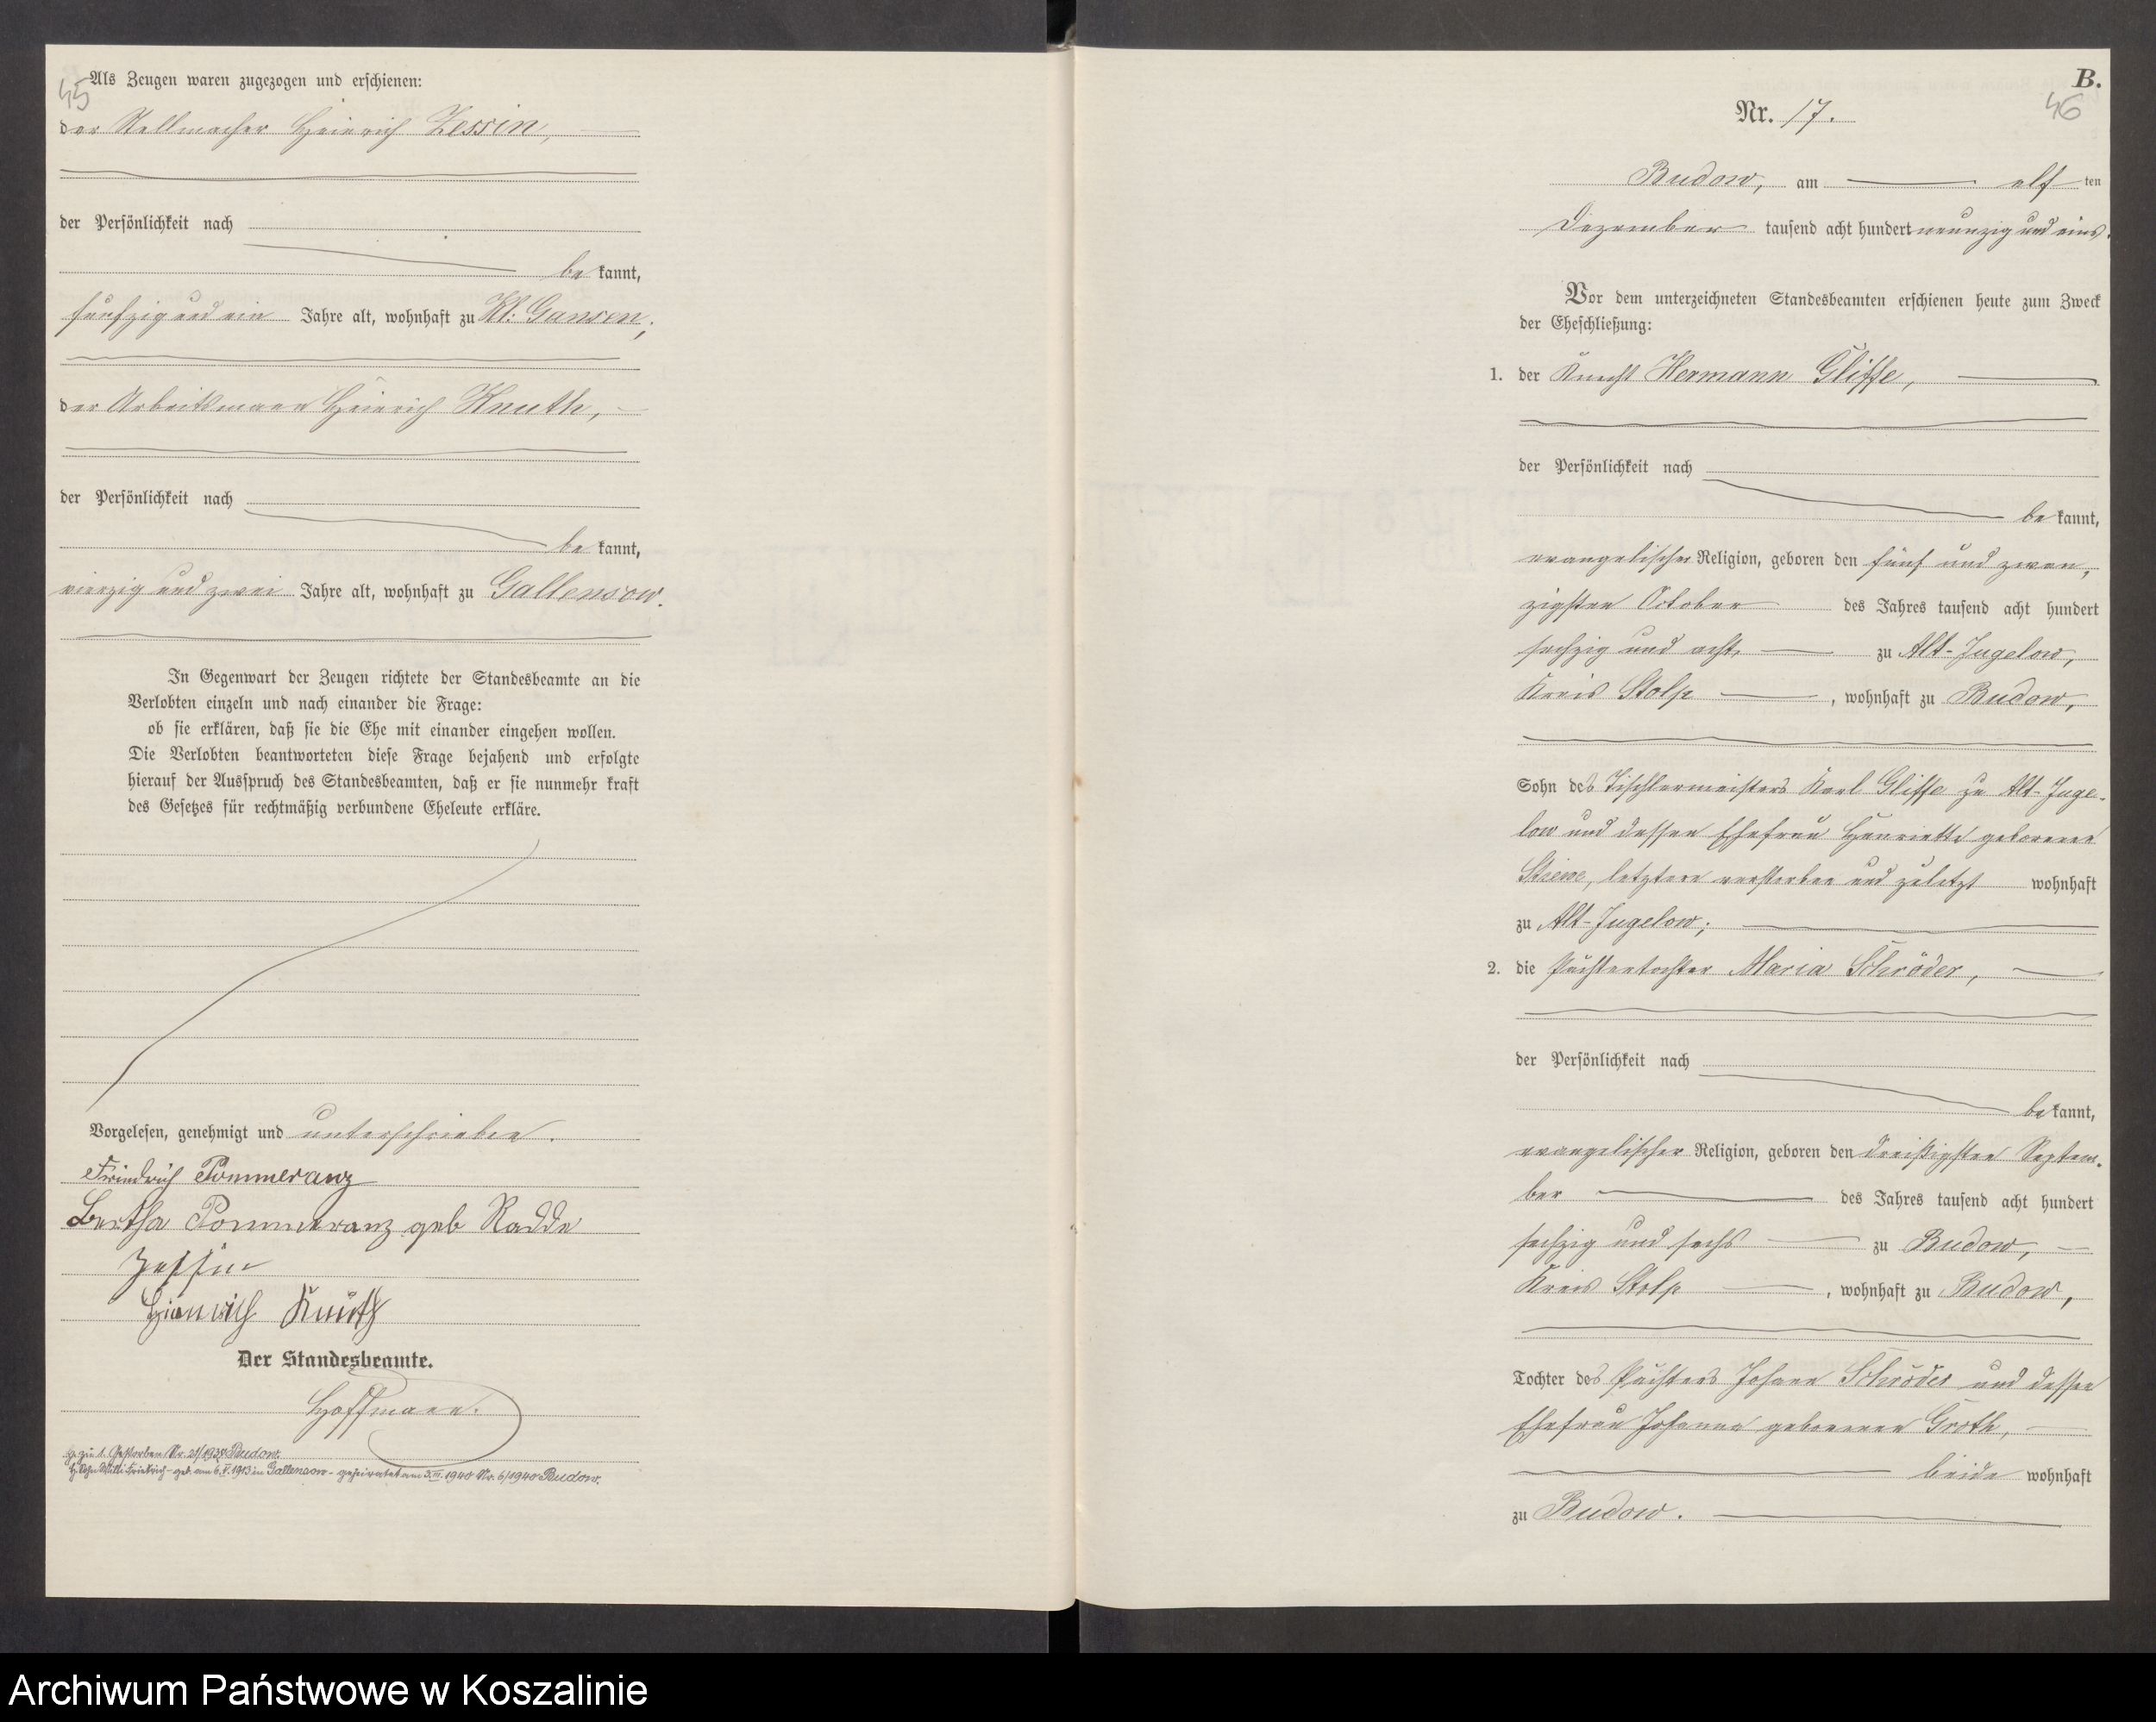 45
Als Zeugen waren zugezogen und erschienen:
der Stellmacher Heinrich Zessin,
der Persönlichkeit nach
be kannt,
fünfzig und ein Jahre alt, wohnhaft zu Kl: Gansen;
der Arbeitsmann Heinrich Knuth,
der Persönlichkeit nach
be kannt,
vierzig und zwei Jahre alt, wohnhaft zu Gallensow.
In Gegenwart der Zeugen richtete der Standesbeamte an die
Verlobten einzeln und nach einander die Frage:
ob sie erklären, daß sie die Ehe mit einander eingehen wollen.
Die Verlobten beantworteten diese Frage bejahend und erfolgte
hierauf der Ausspruch des Standesbeamten, daß er sie nunmehr kraft
des Gesetzes für rechtmäßig verbundene Eheleute erkläre.
Vorgelesen, genehmigt und unterschrieben.
Friedrich Pommeranz
Bertha Pommeranz geb Radde
Zessin
Heinrich Knuth
Der Standesbeamte.
Hoffmann.
zu 1. Gestorben Nr. Budow.
Sohn Willi Friedrich - geb. am 6.V.1913 in Gallensow - geheiratet am 1940 Nr. 6/1940 Budow.
B.
46
Nr. 17.
Budow, am elf ten
Dezember tausend acht hundert neunzig und eins.
Vor dem unterzeichneten Standesbeamten erschienen heute zum Zweck
der Eheschließung:
1. der Knecht Hermann Gliffe,
der Persönlichkeit nach
be kannt,
evangelischer Religion, geboren den fünf und zwan,
zigsten October des Jahres tausend acht hundert
sechzig und acht, zu Alt-Jugelow,
Kreis Stolp, wohnhaft zu Budow,
Sohn des Tischlermeisters Karl Gliffe zu Alt-Juge-
low und dessen Ehefrau Henriette geborenen
letztere verstorben und zuletzt wohnhaft
zu Alt-Jugelow;
2. die Pächtertochter Maria Schröder,
der Persönlichkeit nach
be kannt,
evangelischer Religion, geboren den dreißigsten Septem-
ber des Jahres tausend acht hundert
sechzig und sechs zu Budow,
Kreis Stolp, wohnhaft zu Budow,
Tochter des Pächters Johann Schröder und dessen
Ehefrau Johanna geborenen Groth,
beide wohnhaft
zu Budow.
Archiwum Państwowe w Koszalinie